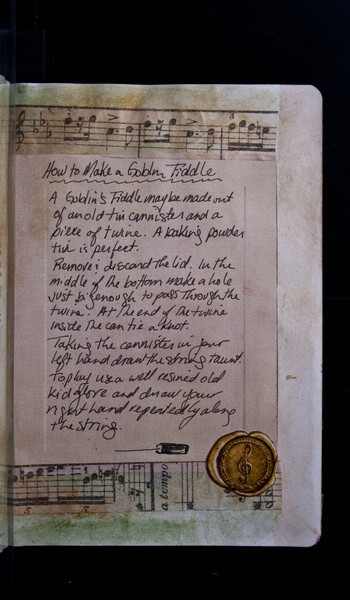 How to Make a Goblin Fiddle
A Goblin's Fiddle may be made out
of an old tin cannister and a
piece of twine. A baking powder
tin is perfect.
Remove & discard the lid. In the
middle of the bottom make a hole
just big enough to pass through the
twine. At the end of the twine
inside the can tie a knot.
Taking the cannister in your
left hand draw the string taunt.
To play use a well resined old
kid glove and draw your
right hand repeatedly along
the string.
a tempo
5
5